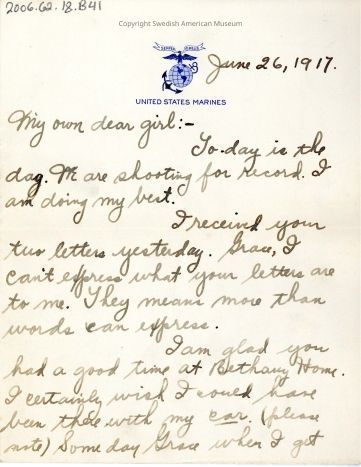 2006.62.12.B41
Copyright Swedish American Museum
SEMPER FIDELIS
June 26, 1917.
UNITED STATES MARINES
My own dear girl:-
To-day is the
day. We are shooting for record. I
am doing my best.
I received your
two letters yesterday. Grace, I
can't express what your letters are
to me. They means more than
words can express.
I am glad you
had a good time at Bethany Home.
I certainly wish I could have
been there with my car. (please
note) Some day Grace when I get